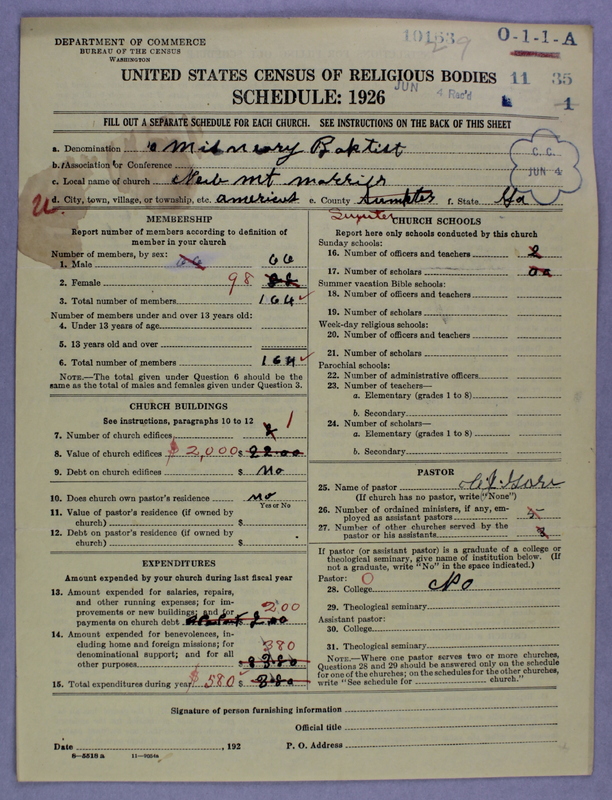 DEPARTMENT OF COMMERCE
BUREAU OF THE CENSUS
WASHINGTON
O-1-1-A
UNITED STATES CENSUS OF RELIGIOUS BODIES 11 35
JUN 4 Rec'd
SCHEDULE: 1926 1
FILL OUT A SEPARATE SCHEDULE FOR EACH CHURCH. SEE INSTRUCTIONS ON THE BACK OF THIS SHEET
C. C.
JUN 4
a. Denomination Misneary Baptist
b. Association or Conference
c. Local name of church New mt marrier
d. City, town, village, or township, etc. americus e. County Sumpter f. State Ga
MEMBERSHIP
Report number of members according to definition of
member in your church
Number of members, by sex:
1. Male 66 66
2. Female 98
3. Total number of members 164
Number of members under and over 13 years old:
4. Under 13 years of age
5. 13 years old and over
6. Total number of members 164
NOTE.—The total given under Question 6 should be
same as the total of males and females given under Question 3.
CHURCH BUILDINGS
See instructions, paragraphs 10 to 12
7. Number of church edifices 1
8. Value of church edifices $2,000 $ 2200
9. Debt on church edifices $ No
10. Does church own pastor's residence no
Yes or No
11. Value of pastor's residence (if owned by
church) $
12. Debt on pastor's residence (if owned by
church) $
EXPENDITURES
Amount expended by your church during last fiscal year
13. Amount expended for salaries, repairs,
and other running expenses; for im-
provements or new buildings; and for
payments on church debt 200
14. Amount expended for benevolences, in-
cluding home and foreign missions; for
denominational support; and for all
other purposes 380
15. Total expenditures during year $580 $
CHURCH SCHOOLS
Report here only schools conducted by this church
Sunday schools:
16. Number of officers and teachers 2
17. Number of scholars
Summer vacation Bible schools:
18. Number of officers and teachers
19. Number of scholars
Week-day religious schools:
20. Number of officers and teachers
21. Number of scholars
Parochial schools:
22. Number of administrative officers
23. Number of teachers—
a. Elementary (grades 1 to 8)
b. Secondary
24. Number of scholars—
a. Elementary (grades 1 to 8)
b. Secondary
PASTOR
25. Name of pastor
(If church has no pastor, write "None")
26. Number of ordained ministers, if any, em-
ployed as assistant pastors 5
27. Number of other churches served by the
pastor or his assistants 3
If pastor (or assistant pastor) is a graduate of a college or
theological seminary, give name of institution below. (If
not a graduate, write "No" in the space indicated.)
Pastor: O
28. College No
29. Theological seminary
Assistant pastor:
30. College
31. Theological seminary
NOTE.—Where one pastor serves two or more churches,
Questions 28 and 29 should be answered only on the schedule
for one of the churches; on the schedules for the other churches,
write "See schedule for church."
Signature of person furnishing information
Official title
Date , 192 P. O. Address
8—5518a 11—9034a